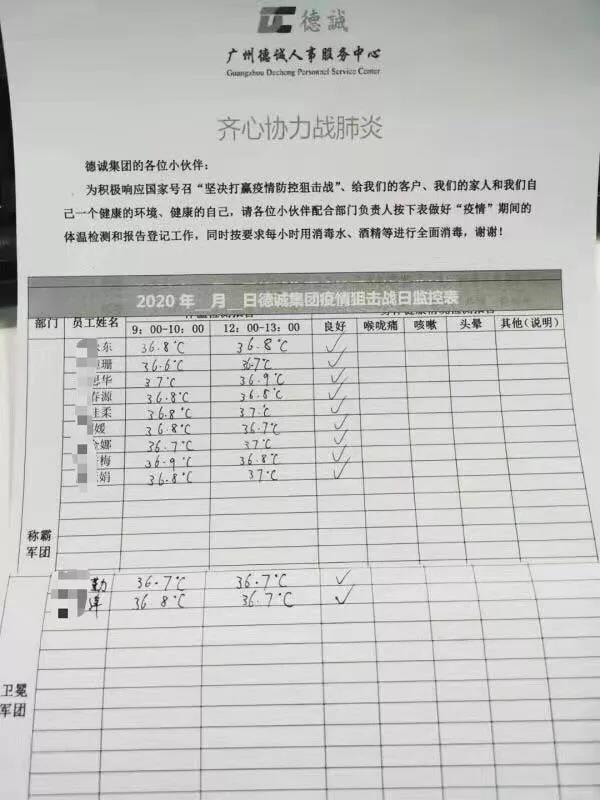 德誠
广州德诚人事服务中心
Guangzhou Decheng Personnel Service Center
齐心协力战肺炎
德诚集团的各位小伙伴：
为积极响应国家号召“坚决打赢疫情防控狙击战”、给我们的客户、我们的家人和我们自
己一个健康的环境、健康的自己，请各位小伙伴配合部门负责人按下表做好“疫情”期间的
体温检测和报告登记工作，同时按要求每小时用消毒水、酒精等进行全面消毒，谢谢！
2020 年 月 日德诚集团疫情狙击战日监控表
部门 员工姓名 9：00-10：00 12：00-13：00 良好 喉咙痛 咳嗽 头晕 其他（说明）
东 36.8℃ 36.8℃ ✓
珊 36.6℃ 36.7℃ ✓
华 37℃ 36.9℃ ✓
春源 36.8℃ 36.8℃ ✓
佳柔 36.8℃ 37.℃ ✓
媛 36.8℃ 36.7℃ ✓
娜 36.7℃ 37℃ ✓
梅 36.9℃ 36.8℃ ✓
娟 36.8℃ 37℃ ✓
称霸
军团
勤 36.7℃ 36.7℃ ✓
36.8℃ 36.7℃ ✓
卫冕
军团